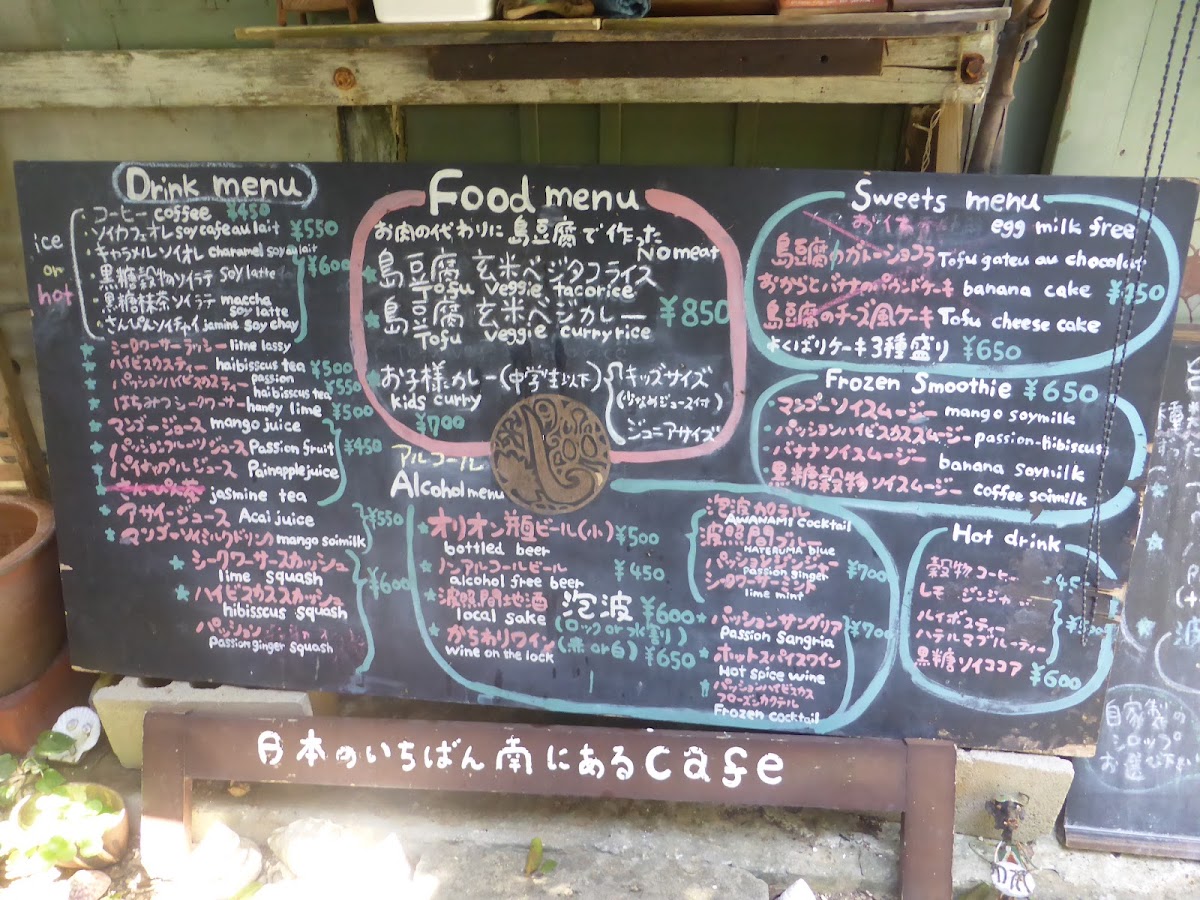 Drink menu
ice
or
hot
コーヒー coffee ¥450
・ソイカフェオレ soy cafe au lait ¥550
・キャラメルソイオレ charamel soy au lait
・黒糖穀物ソイラテ soy latte ¥600
・黒糖抹茶ソイラテ maccha soy latte
・さんぴんソイチャイ jamine soy chay
シークワーサーラッシー lime lassy
ハイビスカスティー haibisscus tea ¥500
パッションハイビスカスティー passion haibisscus tea ¥550
はちみつシークワーサー haney lime ¥500
マンゴージュース mango juice
パッションフルーツジュース Passion fruit ¥450
パイナップルジュース Painapple juice
jasmine tea
アサイージュース Acai juice ¥550
マンゴーソイミルクドリンク mango soimilk
シークワーサースカッシュ
lime squash
ハイビスカススカッシュ ¥600
hibisscus squash
パッション
Passion ginger squash
Food menu
お肉の代わりに島豆腐で作った
No meat
島豆腐 玄米ベジタコライス
Tofu veggie tacorice
島豆腐 玄米ベジカレー ¥850
Tofu veggie curry rice
お子様カレー(中学生以下)
kids curry
¥700
キッズサイズ
(少なめジュース付)
ジュニアサイズ
アルコール
Alcohol menu
オリオン瓶ビール(小) ¥500
bottled beer
ノンアルコールビール ¥450
alcohol free beer
波照間地酒 泡波 ¥600
local sake (ロック or 水割り)
かちわりワイン (赤 or 白) ¥650
wine on the lock
泡波カクテル
AWANAMI cocktail
波照間ブルー
HATERUMA blue
パッションジンジャー ¥700
passion ginger
シークワーサーミント
lime mint
パッションサングリア ¥700
Passion sangria
ホットスパイスワイン
Hot spice wine
パッションハイビスカス
フローズンカクテル
Frozen cocktail
Sweets menu
egg milk free
島豆腐のガトーショコラ Tofu gateu au chocolat
おからとバナナのパウンドケーキ banana cake
島豆腐のチーズ風ケーキ Tofu cheese cake
よくばりケーキ3種盛り ¥650
Frozen Smoothie ¥650
・マンゴーソイスムージー mango soymilk
・パッションハイビスカススムージー passion-hibiscus
・バナナソイスムージー banana soymilk
黒糖穀物ソイスムージー coffee soimilk
Hot drink
穀物コーヒー
ルイボスティー
ハテルマブルーティー
黒糖ソイココア ¥600
日本のいちばん南にあるcafe
自家製の
シロップ
お選び下さい